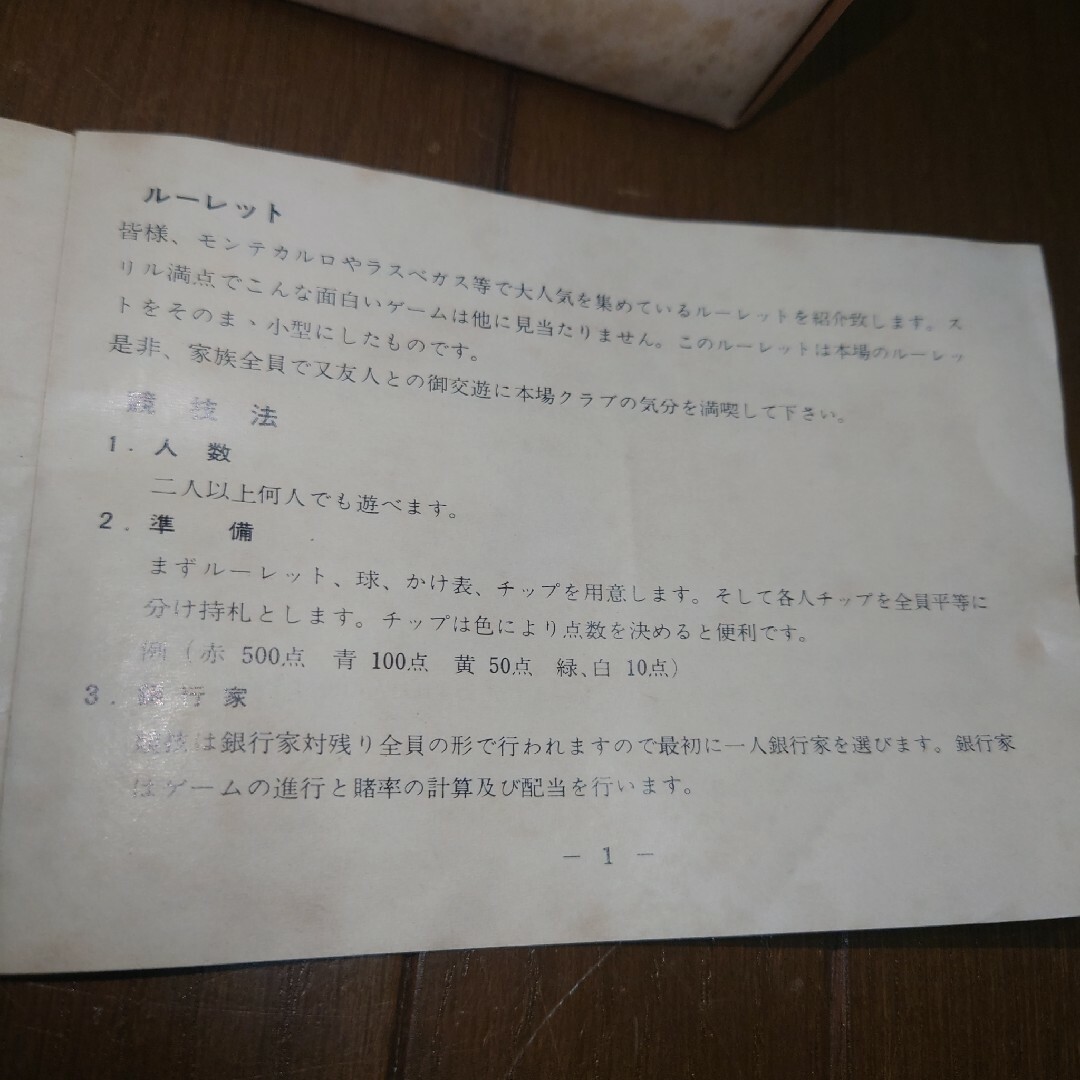 ルーレット
皆様、モンテカルロやラスベガス等で大人気を集めているルーレットを紹介致します。ス
リル満点でこんな面白いゲームは他に見当たりません。このルーレットは本場のルーレッ
トをそのまゝ小型にしたものです。
是非、家族全員で又友人との御交遊に本場クラブの気分を満喫して下さい。
競技法
1. 人数
二人以上何人でも遊べます。
2. 準備
まずルーレット、球、かけ表、チップを用意します。そして各人チップを全員平等に
分け持札とします。チップは色により点数を決めると便利です。
(赤 500点 青 100点 黄 50点 緑、白 10点)
3. 銀行家
競技は銀行家対残り全員の形で行われますので最初に一人銀行家を選びます。銀行家
はゲームの進行と賭率の計算及び配当を行います。
— 1 —